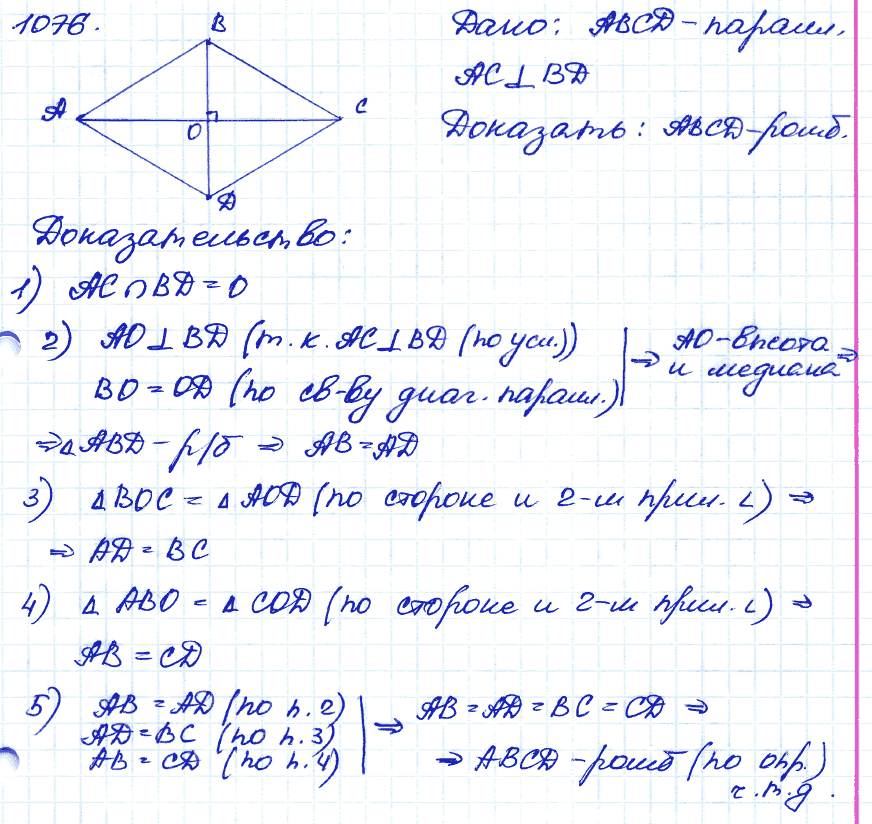 1076.
B
A
C
O
D
Дано: ABCD - парал.
AC ⊥ BD
Доказать: ABCD - ромб.
Доказательство:
1) AC ∩ BD = O
2) AO ⊥ BD (т.к. AC ⊥ BD (по усл.))
BO = OD (по св-ву диаг. парал.)
⇒ AO - высота
и медиана ⇒
⇒ △ABD - р/б ⇒ AB = AD
3) △BOC = △AOD (по стороне и 2-м прил. ∠) ⇒
⇒ AD = BC
4) △ABO = △COD (по стороне и 2-м прил. ∠) ⇒
AB = CD
5) AB = AD (по п. 2)
AD = BC (по п. 3)
AB = CD (по п. 4)
⇒ AB = AD = BC = CD ⇒
⇒ ABCD - ромб (по опр.)
ч.т.д.